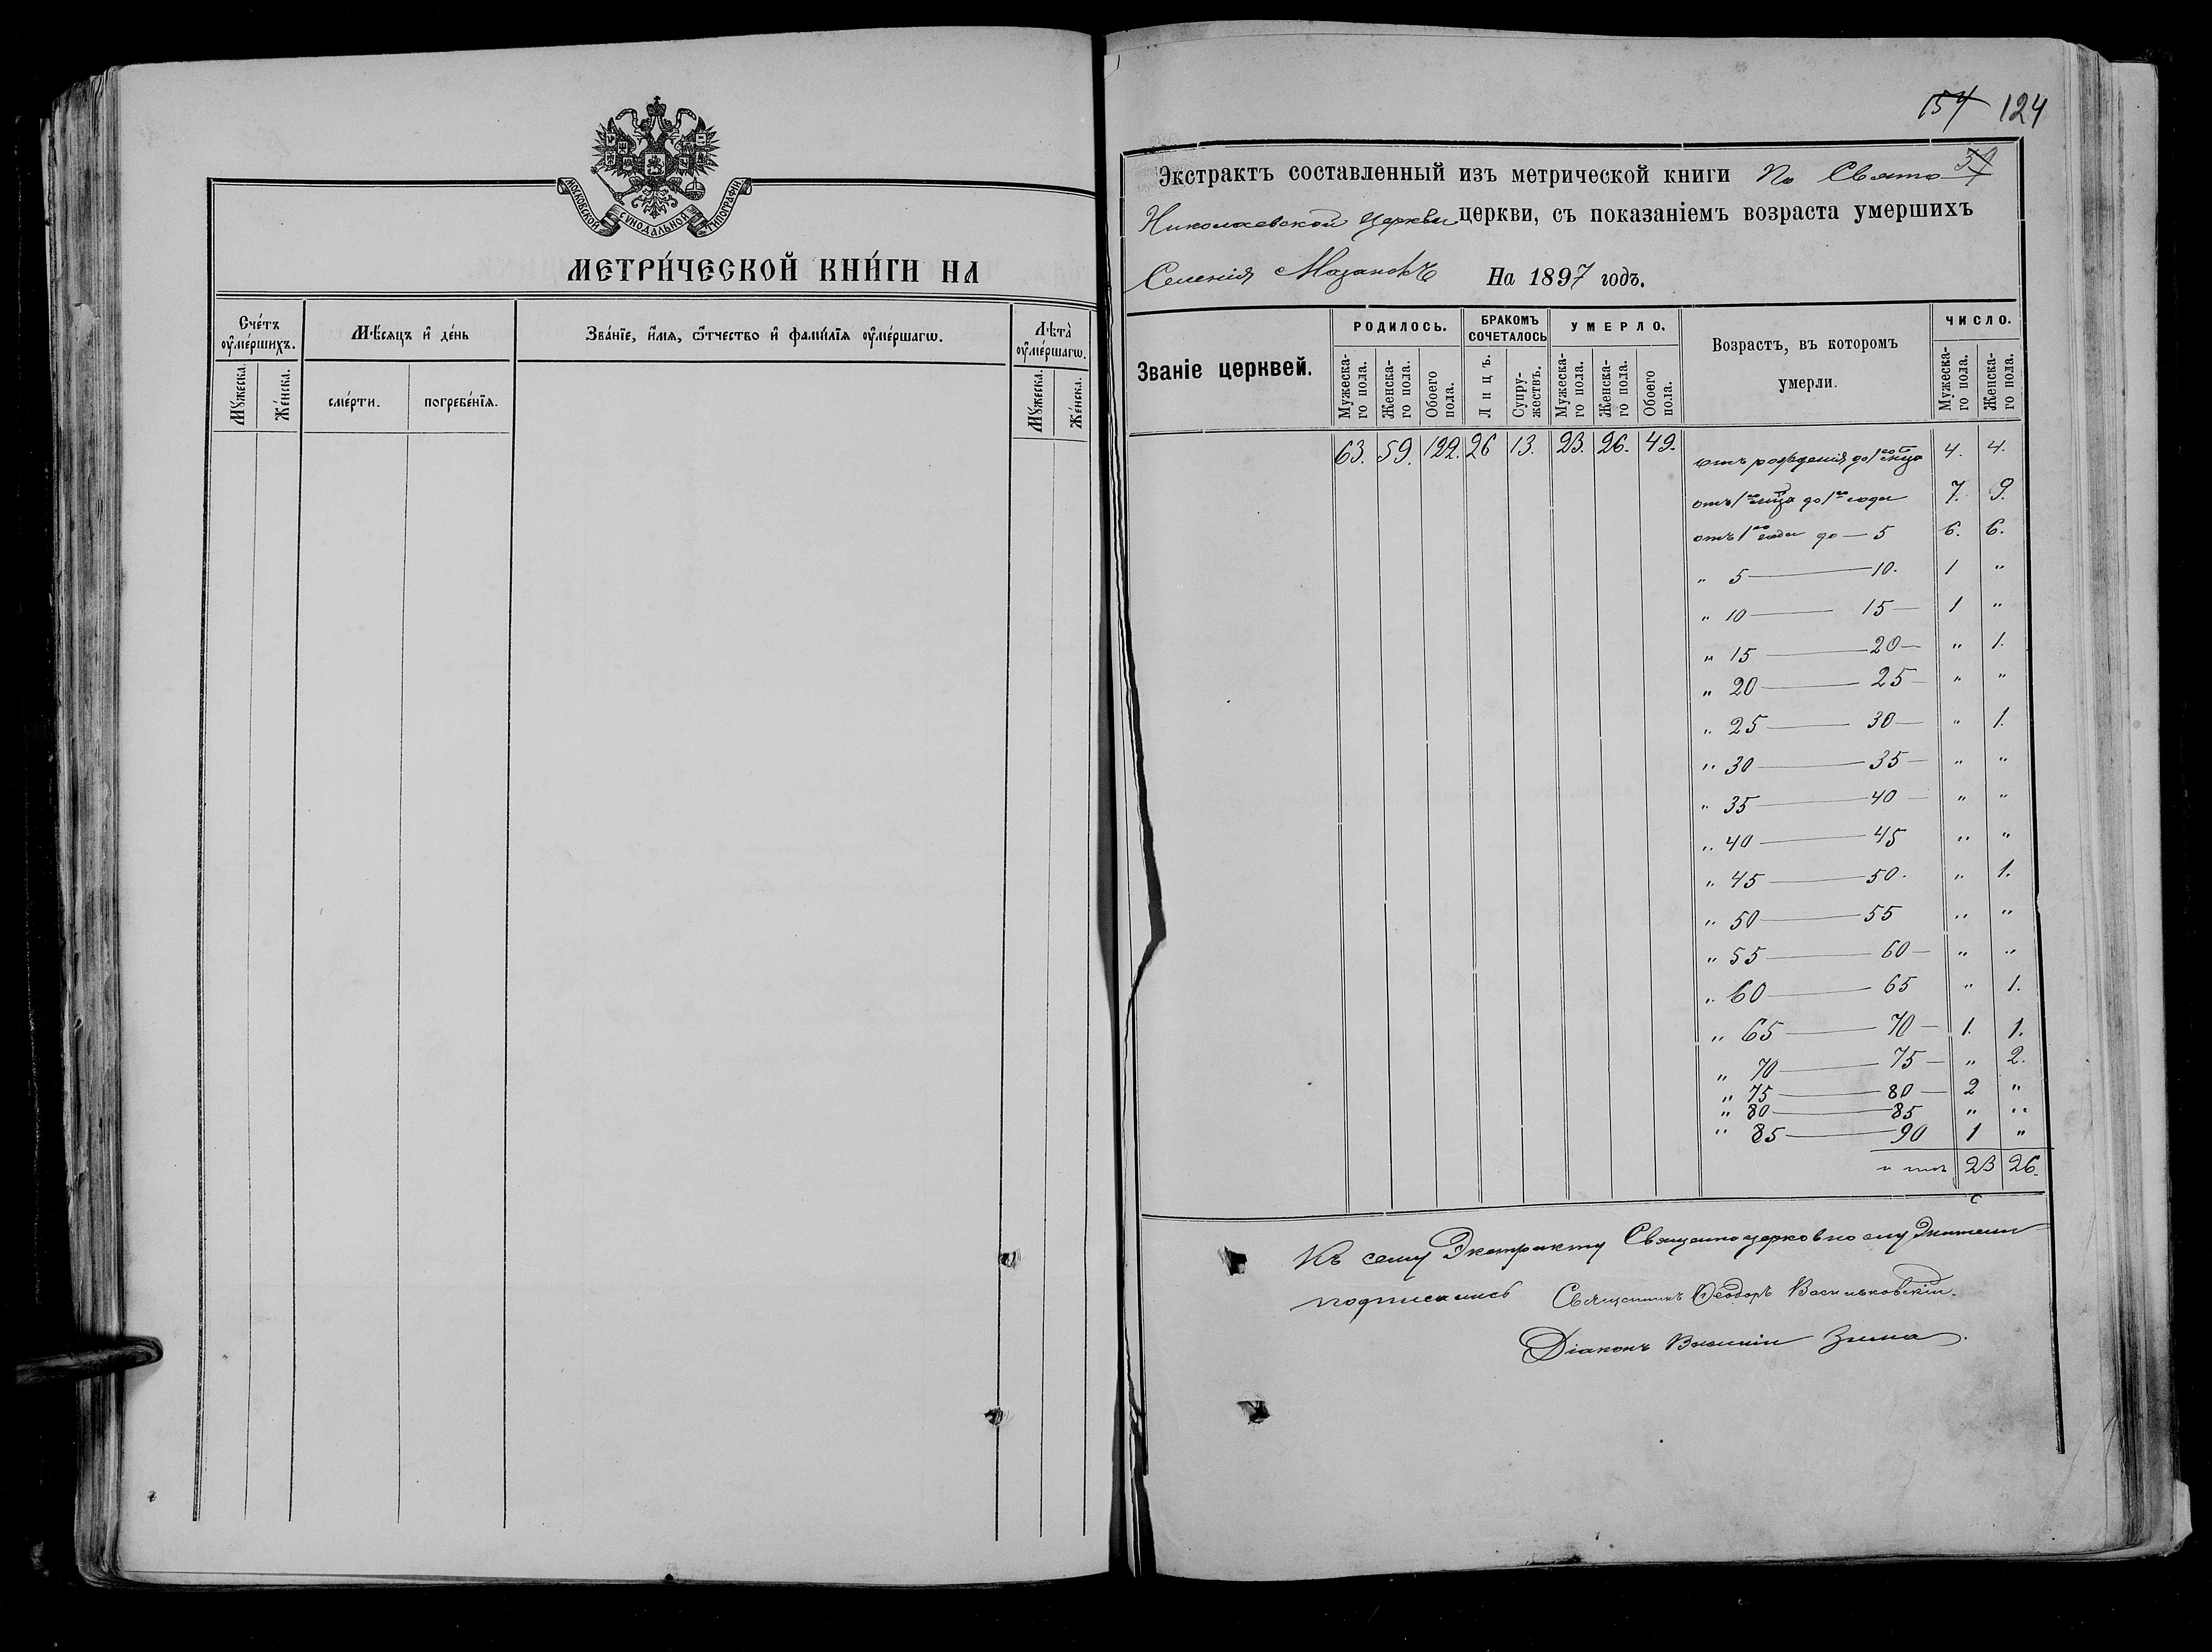 МОСКОВСКОЙ СѴНОДАЛЬНОЙ ТИПОГРАФІИ
МЕТРИ́ЧЕСКОЙ КНИ́ГИ НА
Сче́тъ оу҆ме́ршихъ.
Мꙋ́жеска.
Же́нска.
Мѣ́сяцъ и҆ де́нь
сме́рти.
погребе́нїѧ.
Зва́нїе, и҆́мѧ, ѻ҆́тчество и҆ фамилїѧ оу҆ме́ршагѡ.
Лѣта̀ оу҆ме́ршагѡ.
Мꙋ́жеска.
Же́нска.
154 124
34
Экстрактъ составленный изъ метрической книги По Свято
Николаевской церкви церкви, съ показаніемъ возраста умершихъ
Селенія Мазановъ На 1897 годъ.
Званіе церквей.
РОДИЛОСЬ.
Мужеска-го пола.
Женска-го пола.
Обоего пола.
БРАКОМЪ СОЧЕТАЛОСЬ
Лицъ.
Супру-жествъ.
УМЕРЛО.
Мужеска-го пола.
Женска-го пола.
Обоего пола.
Возрастъ, въ которомъ умерли.
ЧИСЛО.
Мужеска-го пола.
Женска-го пола.
63. 59. 122. 26 13. 23. 26. 49.
отъ рожденія до 1го мца 4. 4.
отъ 1го мца до 1го года 7. 9.
отъ 1го года до — 5 6. 6.
„ 5 — 10. 1 „
„ 10 — 15 — 1 „
„ 15 — 20 — „ 1.
„ 20 — 25 — „ „
„ 25 — 30 — „ 1.
„ 30 — 35 — „ „
„ 35 — 40 — „ „
„ 40 — 45 „ „
„ 45 — 50. „ 1.
„ 50 — 55 „ „
„ 55 — 60 — „ „
„ 60 — 65 „ 1.
„ 65 — 70 — 1. 1.
„ 70 — 75 — „ 2.
„ 75 — 80 — 2 „
„ 80 — 85 „ „
„ 85 — 90 1 „
итого 23 26.
Къ сему Экстракту Священноцерковнослужители
подписались Священникъ Ѳеодоръ Васильковскій.
Діаконъ Василій Зима.